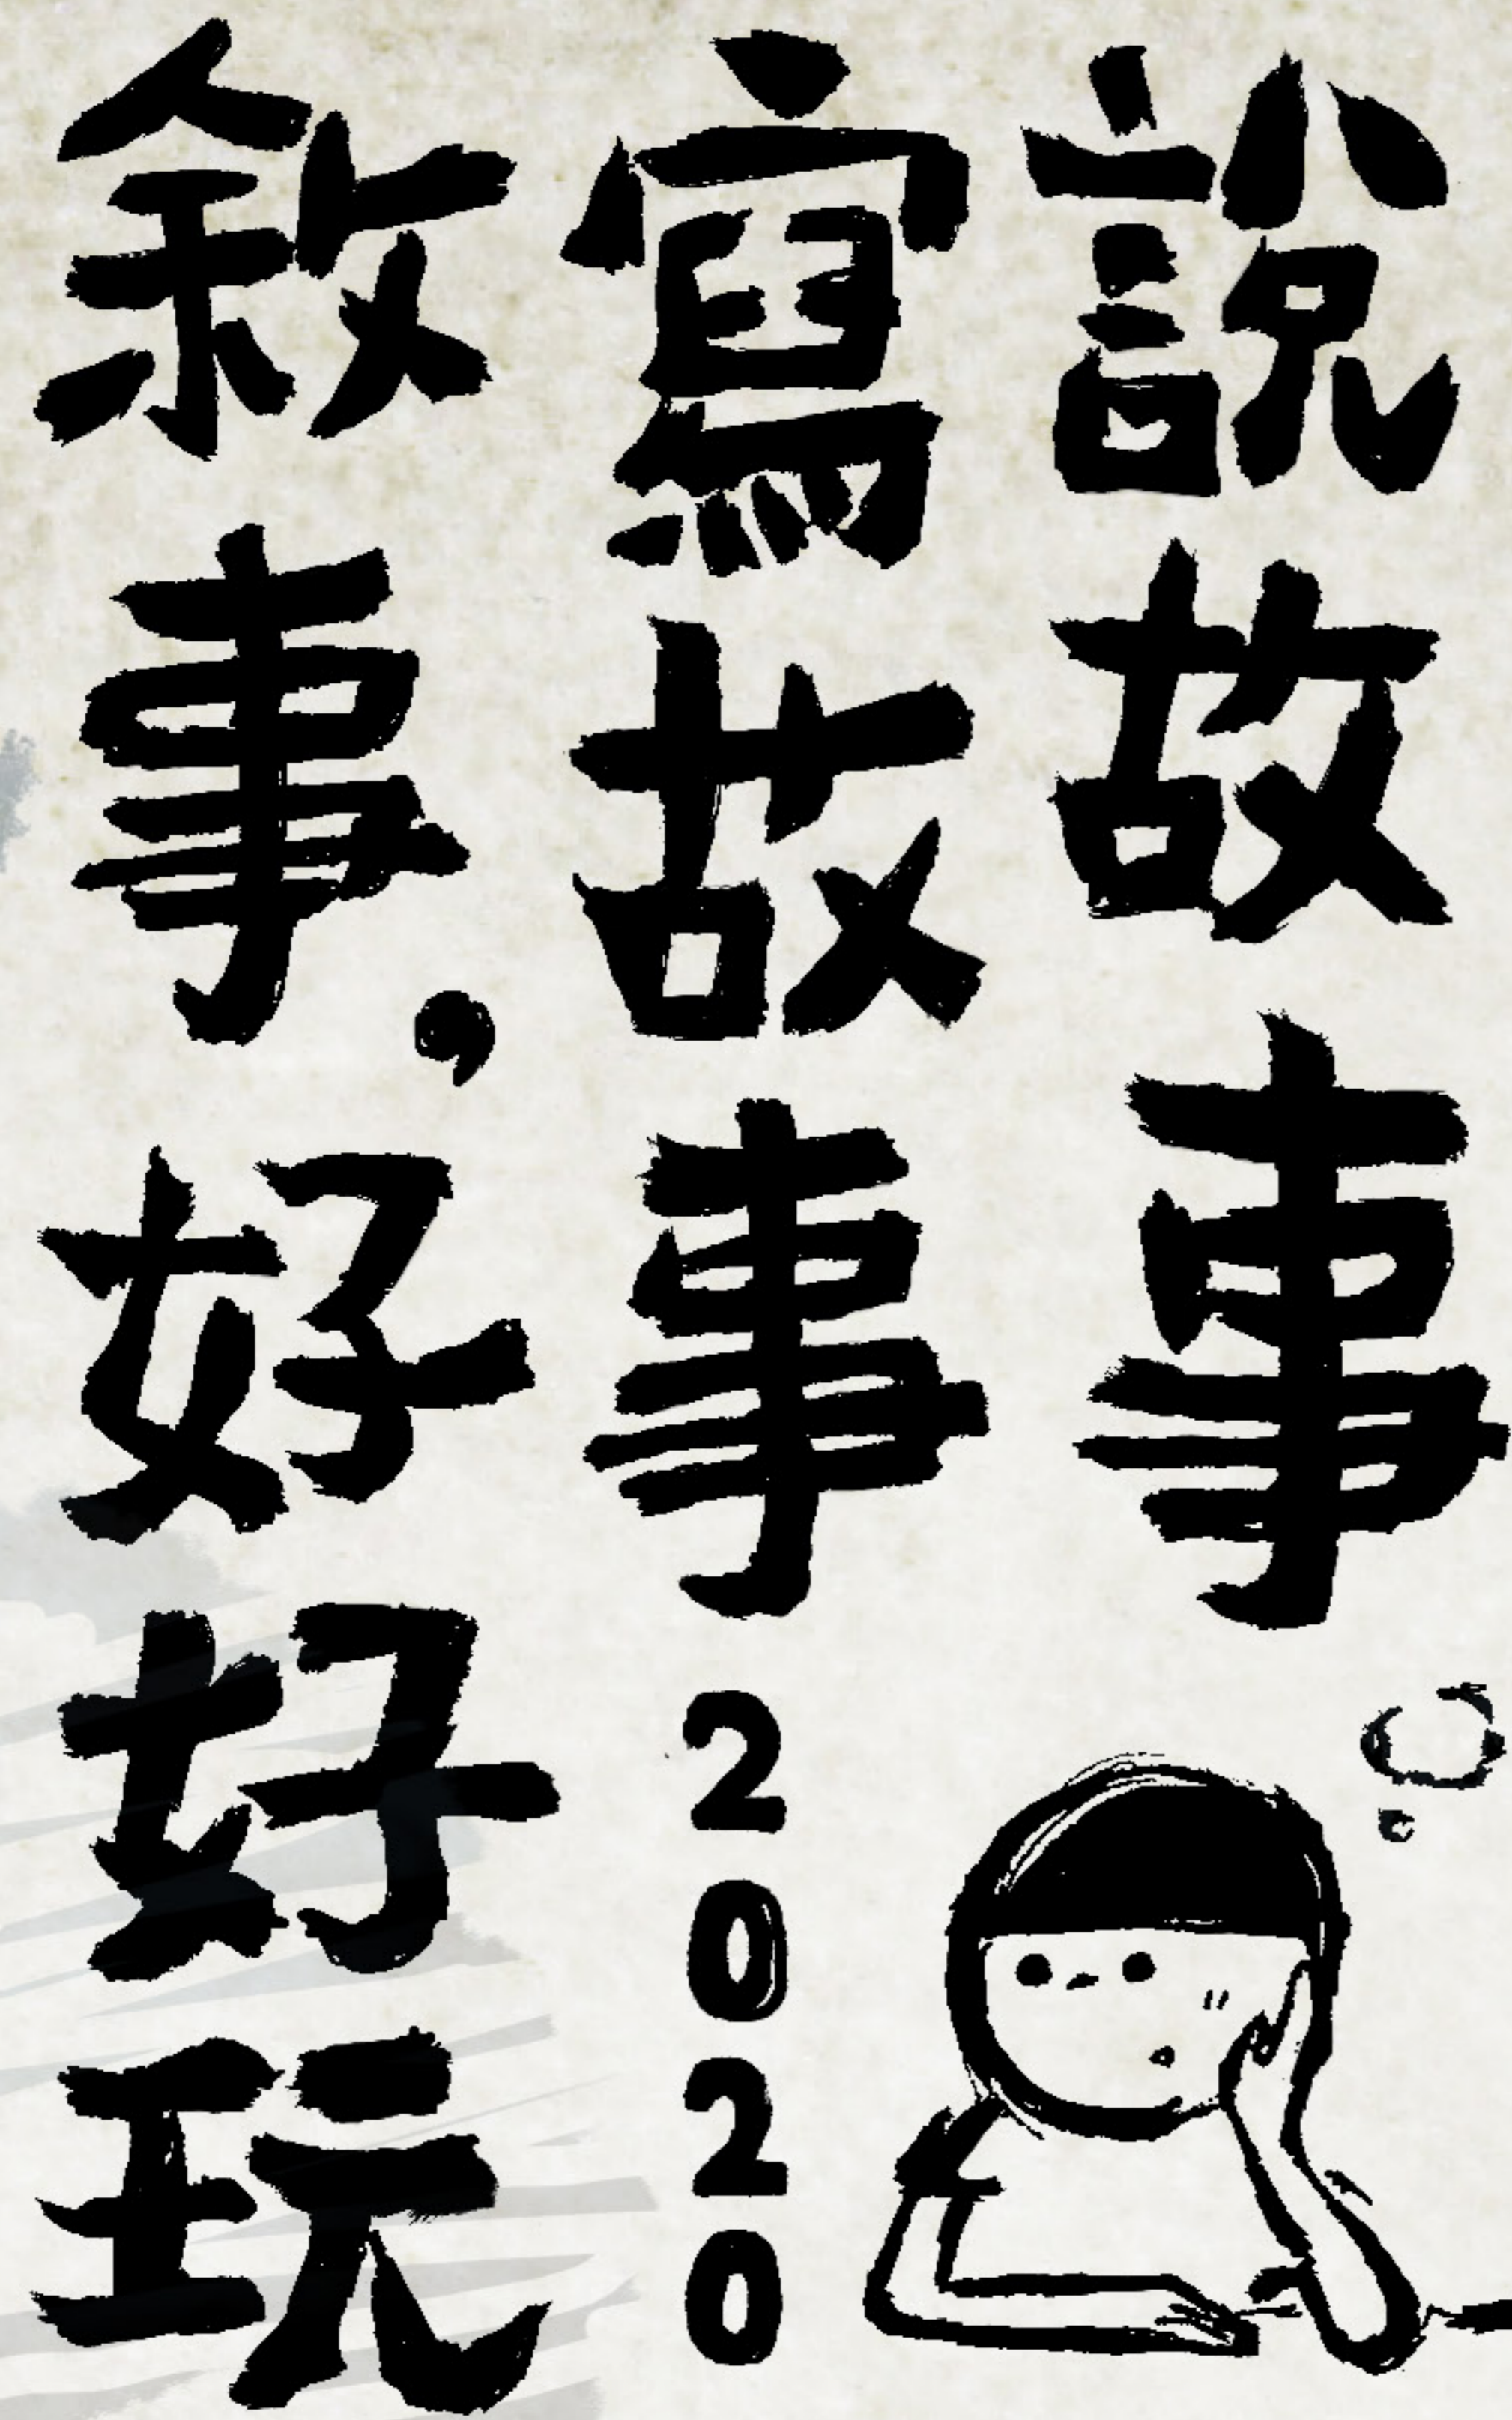 說故事
寫故事2020
敘事，好好玩